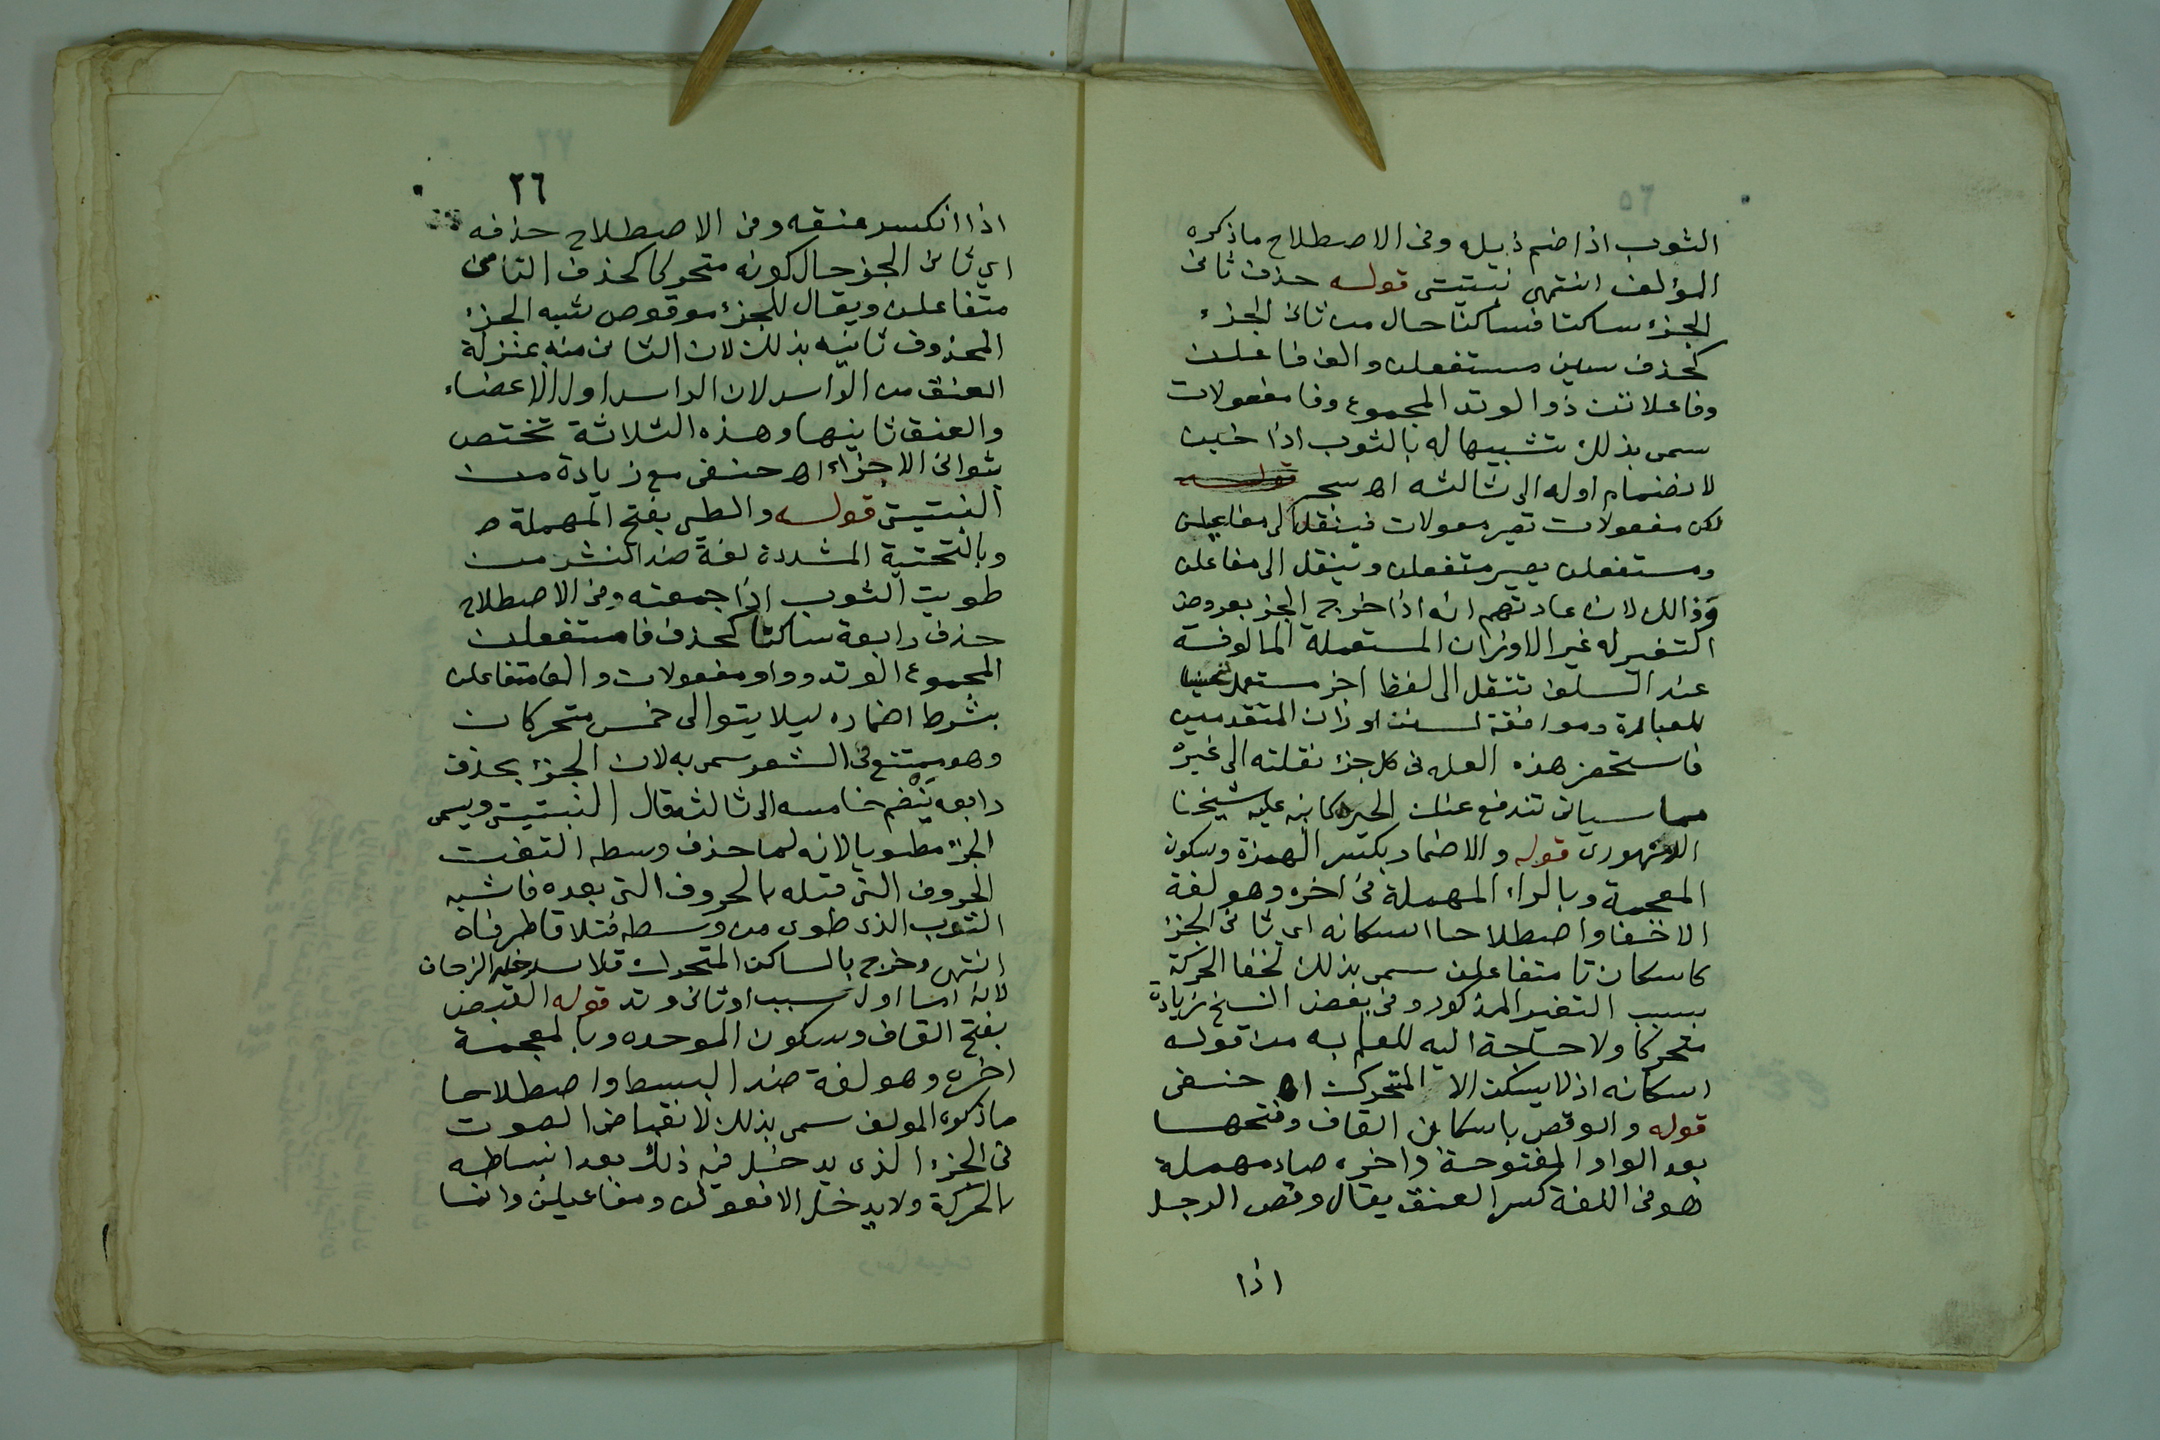 الثوب اذا ضم ذيله وفى الاصطلاح ماذكره
المؤلف انتهى نبتيتى قوله حذف ثانى
الجزء ساكنا فساكنا حال من ثانى الجزء
كحذف سين مستفعلن والف فاعلن
وفاعلاتن ذو الوتد المجموع وفا مفعولات
سمى بذلك تشبيها له بالثوب اذا خبن
لانضمام اوله الى ثالثه اھ سجر قوله
لكن مفعولات تصير معولات فينقل الى مفاعيلن
ومستفعلن يصير متفعلن وينقل الى مفاعلن
وذالك لان عادتهم انه اذا خرج الجز بعروض
التغير له غير الاوزان المستعملة المالوفة
عند السلف تنقل الى لفظ اخر مستعمل تحسينا
للعبارة وموافقة لسنن اوزان المتقدمين
فاستحضر هذه العله فى كل جزء نقلته الى غيره
مما سياتى تندفع عنك الحيره كما نبه عليه شيخنا
قوله والاضمار بكسر الهمزة وسكون
المعجمة وبالراء المهملة فى اخره وهو لغة
الاخفا واصطلاحا اسكانه اى ثانى الجزء
كاسكان تا متفاعلن سمى بذلك لخفا الحركة
بسبب التغير المذكور وفى بعض النسخ زيادة
متحركا ولا حاجة اليه للعلم به من قوله
اسكانه اذ لا يسكن الا المتحرك اھ حنفى
قوله والوقص باسكان القاف وفتحها
بعد الواو المفتوحة واخره صاد مهملة
هو فى اللغة كسر العنق يقال وقص الرجل
اذا
٢٦
اذا انكسر عنقه وفى الاصطلاح حذفه
اى ثانى الجز حال كونه متحركا كحذف التا من
متفاعلن ويقال للجزء موقوص شبه الجزء
المحذوف ثانيه بذلك لان الثانى منه بمنزلة
العنق من الراس لان الراس اول الاعضاء
والعنق ثانيها وهذه الثلاثة تختص
بثوانى الاجزاء اھ حنفى مع زيادة من
النبتيتى قوله والطى بفتح المهملة
وبالتحتية المشددة لغة ضد النشر من
طويت الثوب اذا جمعته وفى الاصطلاح
حذف رابعة ساكنا كحذف فا مستفعلن
المجموع الوتد وواو مفعولات والف متفاعلن
بشرط اضماره ليلا يتوالى خمس متحركات
وهو ممتنع فى الشعر سمى به لان الجزء بحذف
رابعه ينضم خامسه الى ثالثه قال النبتيتى ويسمى
الجزء مطويا لانه لما حذف وسطه التفت
الحروف التى قبله بالحروف التى بعده فاشبه
الثوب الذى طوى من وسطه فتلاقا طرفاه
انتهى وخرج بالساكن المتحرك فلا يدخله الزحاف
لانه اما اول سبب او ثانى وتد قوله القبض
بفتح القاف وسكون الموحده وبالمعجمة
اخره وهو لغة ضد البسط واصطلاحا
ماذكره المولف سمى بذلك لانقباض الصوت
فى الجزء الذى يدخل فيه ذلك بعد انبساطه
بالحركة ولا يدخل الا فعولن ومفاعيلن وانما